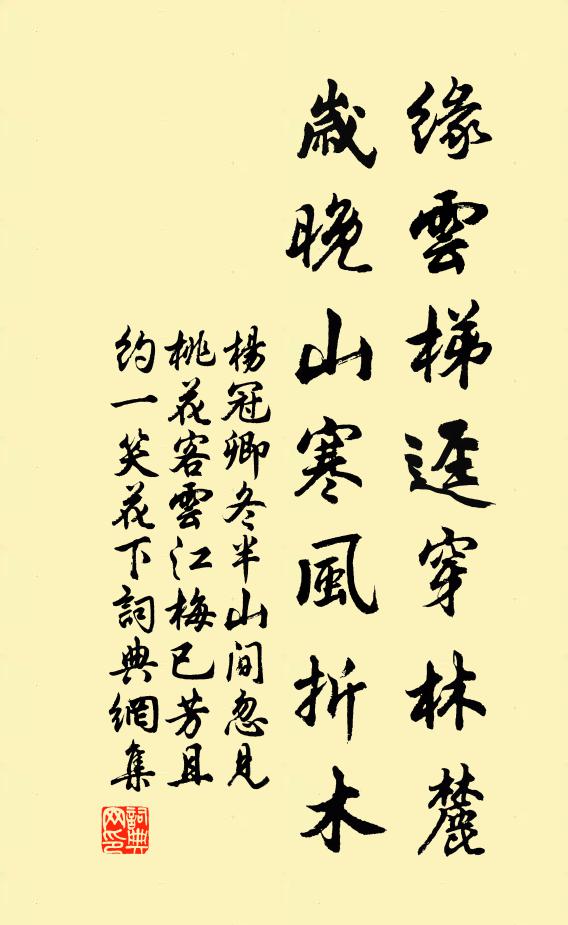 緣雲梯逕穿林麓
歲晚山寒風折木
楊冠卿冬半山間忽見
桃花客雲江梅已芳且
約一笑花下詞典網集
詞典網印